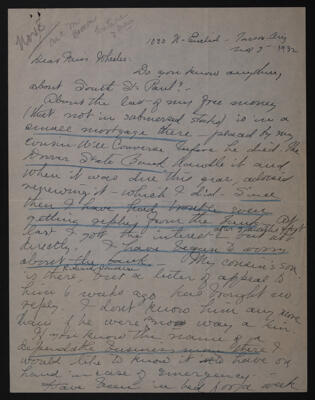 1030 N - Euclid - Tucson Ariz
Nov 3 - 1932
Dear Miss Wheeler -
Do you know anything
about South St. Paul? -
About the last of my free money
(that not in submerged stocks) is in a
small mortgage there - placed by my
cousin Will Converse before he died. The
State Bank handle it and
when it was due this year, advised
renewing it - which I did. Since
then I have had trouble even
getting replies from the bank. At
last I got the interest
directly. I have begun to worry
about the bank. My cousin's son
is there, but a letter of appeal to
him 6 weeks ago has brought no
reply. I don't know him any more
than if he were no way a kin.
If you know the name of a
dependable business man there I
would like to know it to have on
hand in case of emergency -
Have been in bed for a week